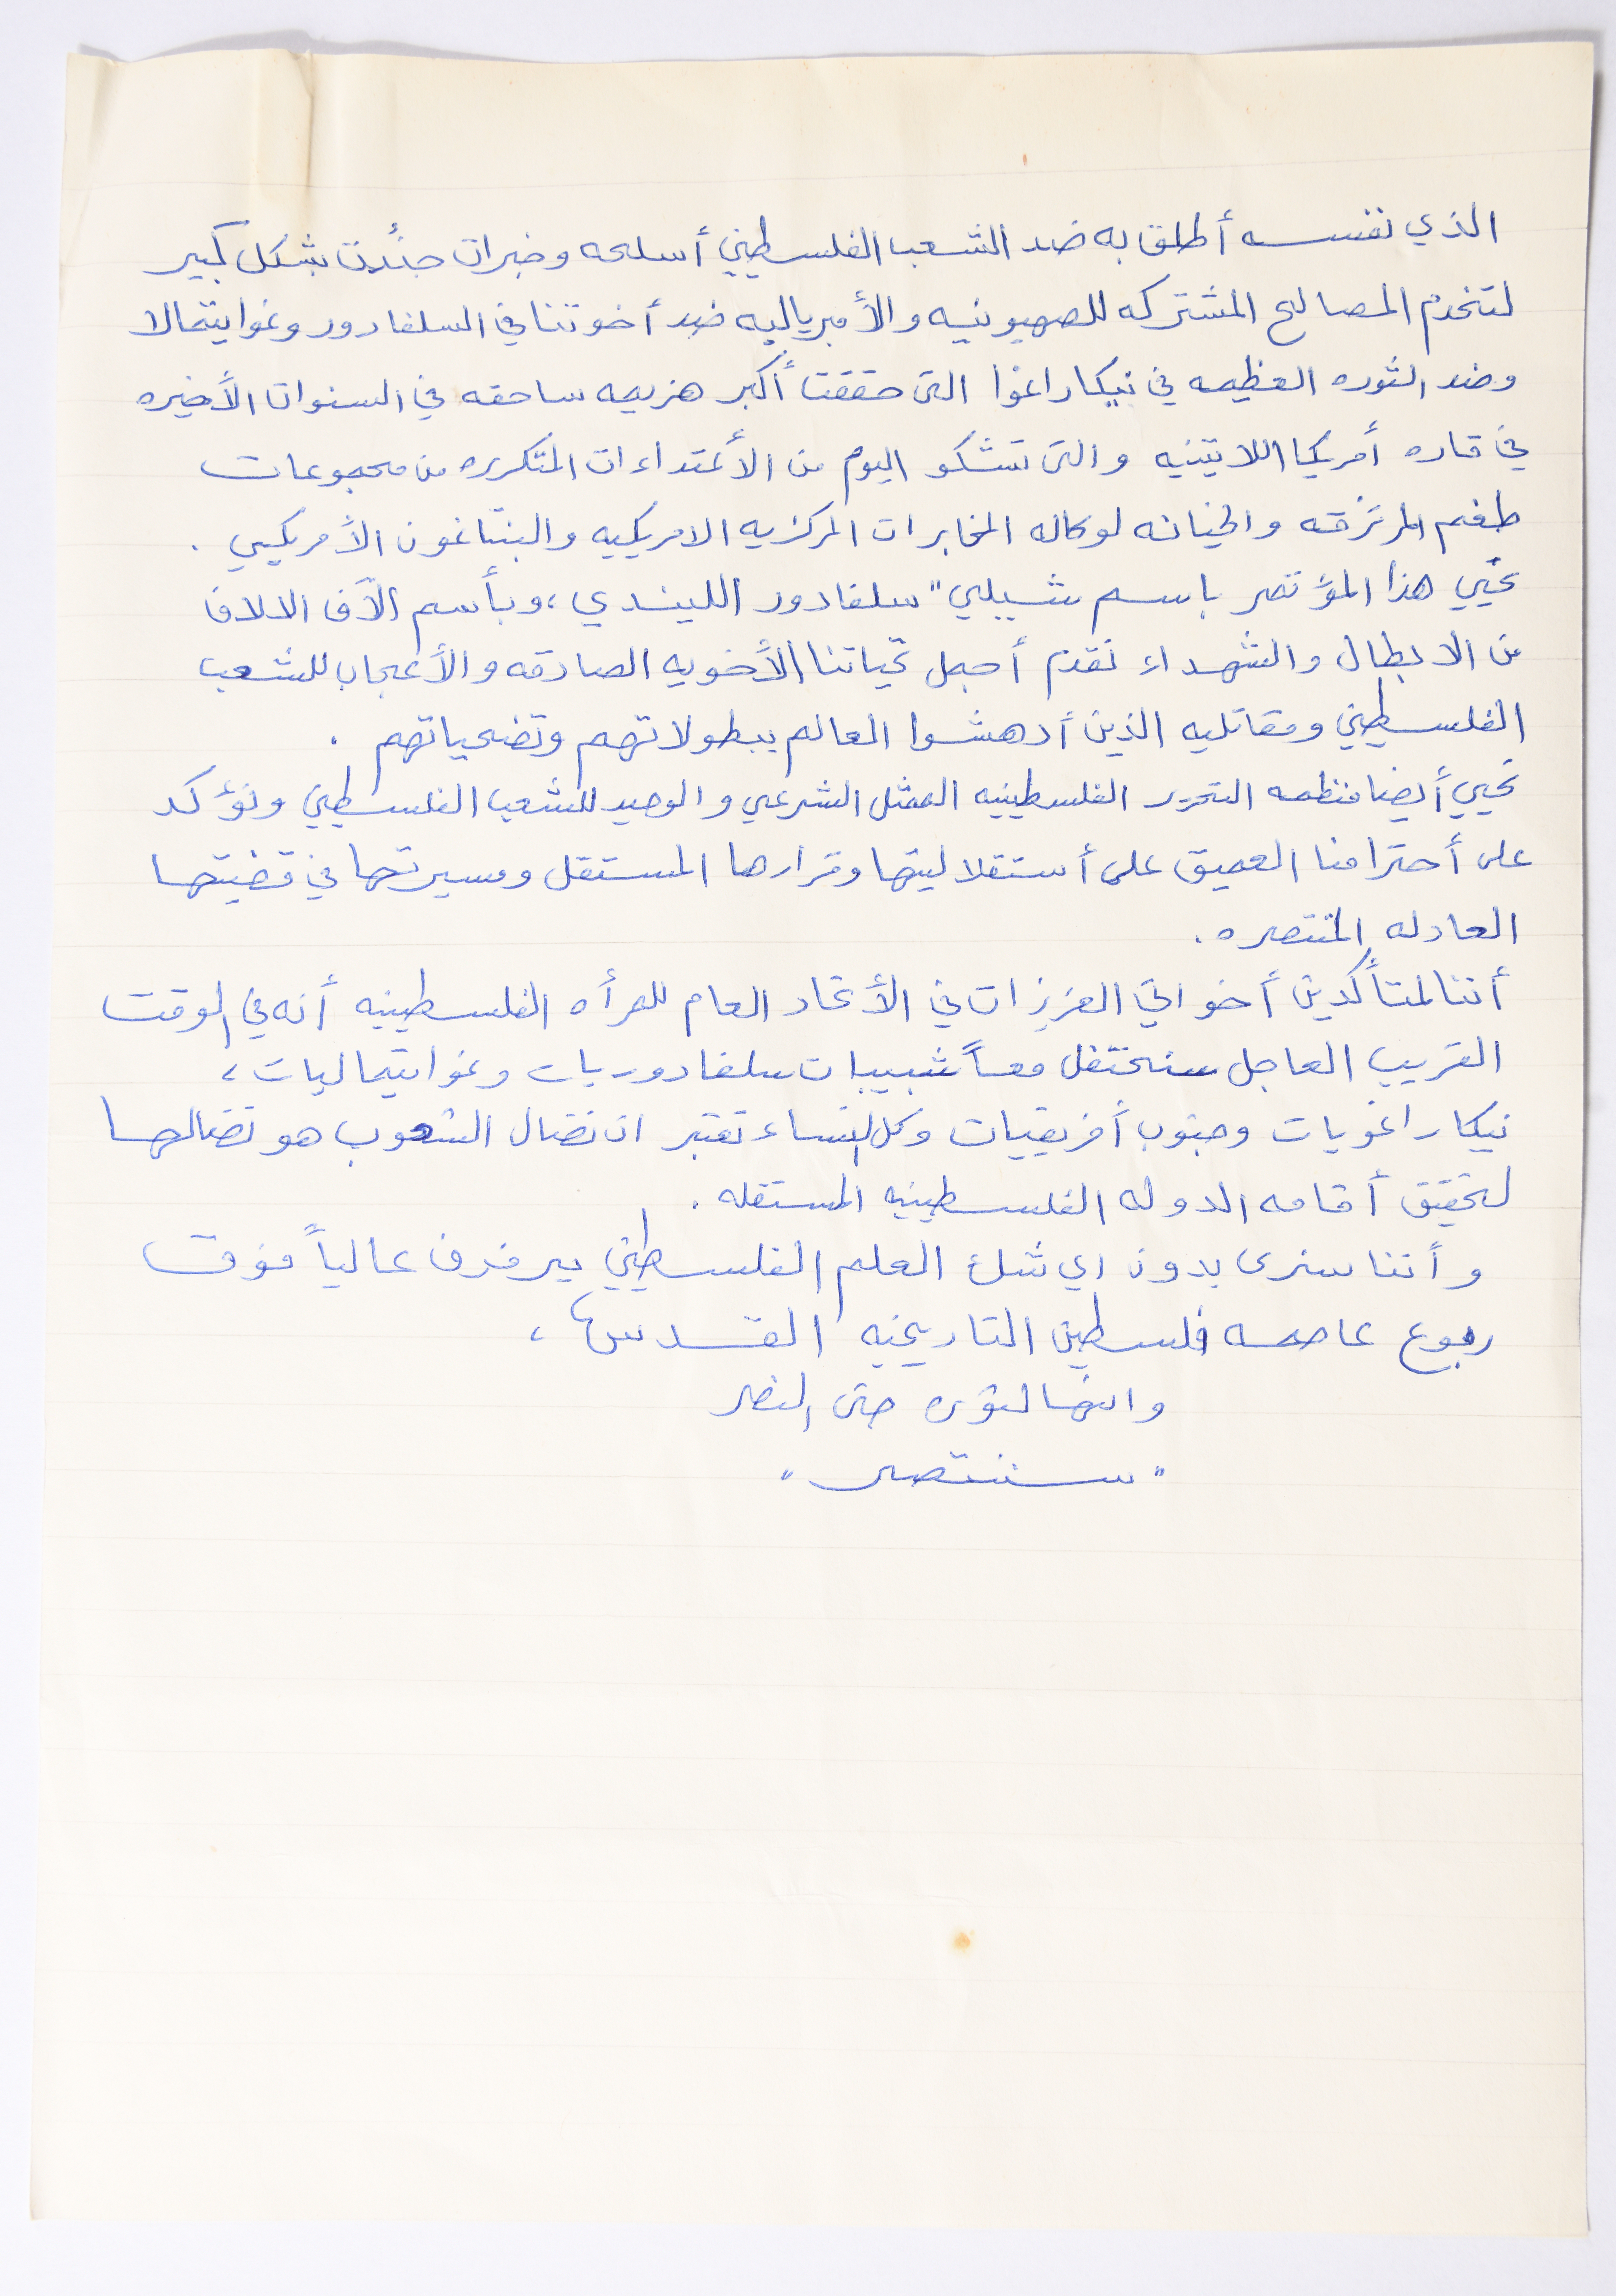 الذي نفسه أطلق به ضد الشعب الفلسطيني أسلحه وخبرات جنُدت بشكل كبير
لتخدم المصالح المشتركه للصهيونيه والأمبرياليه ضد أخوتنا في السلفادور وغواتيمالا
وضد الثوره العظيمه في نيكاراغوا التى حققت أكبر هزيمه ساحقه في السنوات الأخيره
في قاره أمريكا اللاتينيه والتى تشكو اليوم من الأعتداءات المتكرره من مجموعات
طغم المرتزقه والخيانه لوكاله المخابرات المركزيه الامريكيه والبنتاغون الأمريكي .
نحيي هذا المؤتمر باسم شيلي " سلفادور اللیندي ، وبأسم الآف الالاف
من الابطال والشهداء نقدم أجمل تحياتنا الأخويه الصادقه والأعجاب للشعب
الفلسطيني ومقاتليه الذين أدهشوا العالم ببطولاتهم وتضحياتهم .
نحيي أيضا منظمه التحرير الفلسطينيه الممثل الشرعي والوحيد للشعب الفلسطيني ونؤكد
على أحترامنا العميق على أستقلاليتها وقرارها المستقل ومسيرتها في قضيتها
العادله المنتصره .
أننا لمتأكدين أخواتي العزيزات في الأتحاد العام للمرأه الفلسطينيه أنه في الوقت
القريب العاجل سنحتفل معاً شيليات سلفادوريات وغواتيماليات ،
نيكاراغويات وجنوب أفريقيات وكل النساء تعتبر ان نضال الشعوب هو نضالها
لتحقيق أقامه الدوله الفلسطينيه المستقله .
وأننا سنرى بدون اي شك العلم الفلسطيني يرفرف عالياً فوق
ربوع عاصمه فلسطين التاريخيه القدس ،
وانها لثوره حتى النصر
" سننتصر "